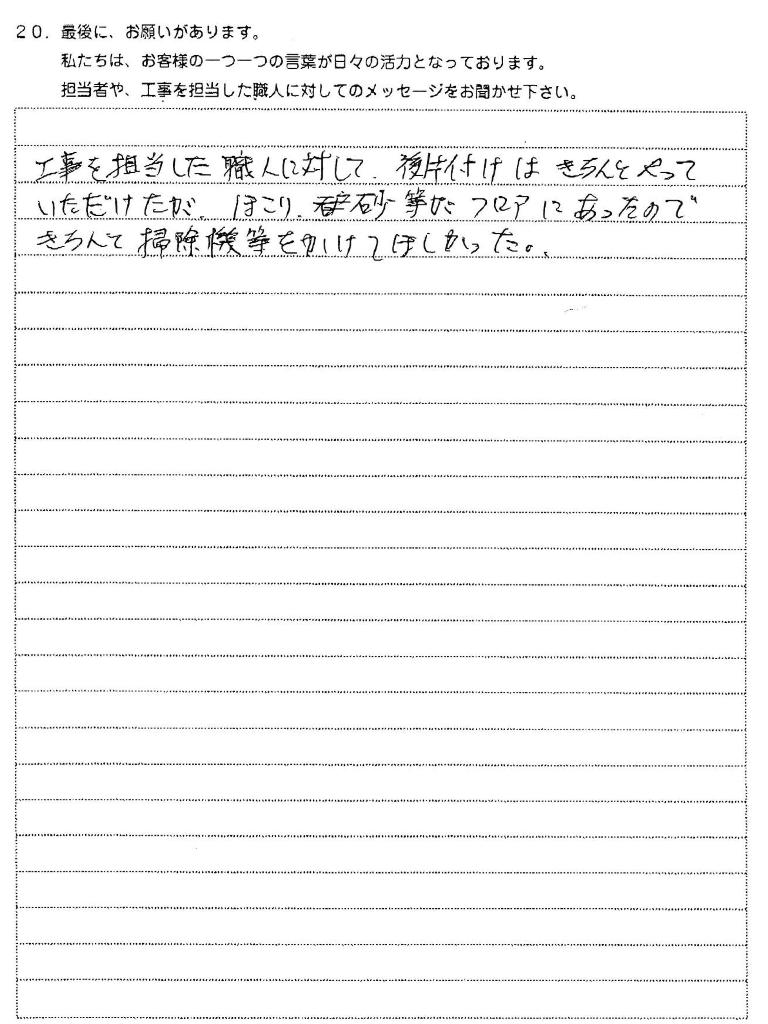 20．最後に、お願いがあります。
私たちは、お客様の一つ一つの言葉が日々の活力となっております。
担当者や、工事を担当した職人に対してのメッセージをお聞かせ下さい。
工事を担当した職人に対して、後片付けはきちんとやって
いただけたが、ほこり、砂等がフロアにあったので
きちんと掃除機等をかけてほしかった。